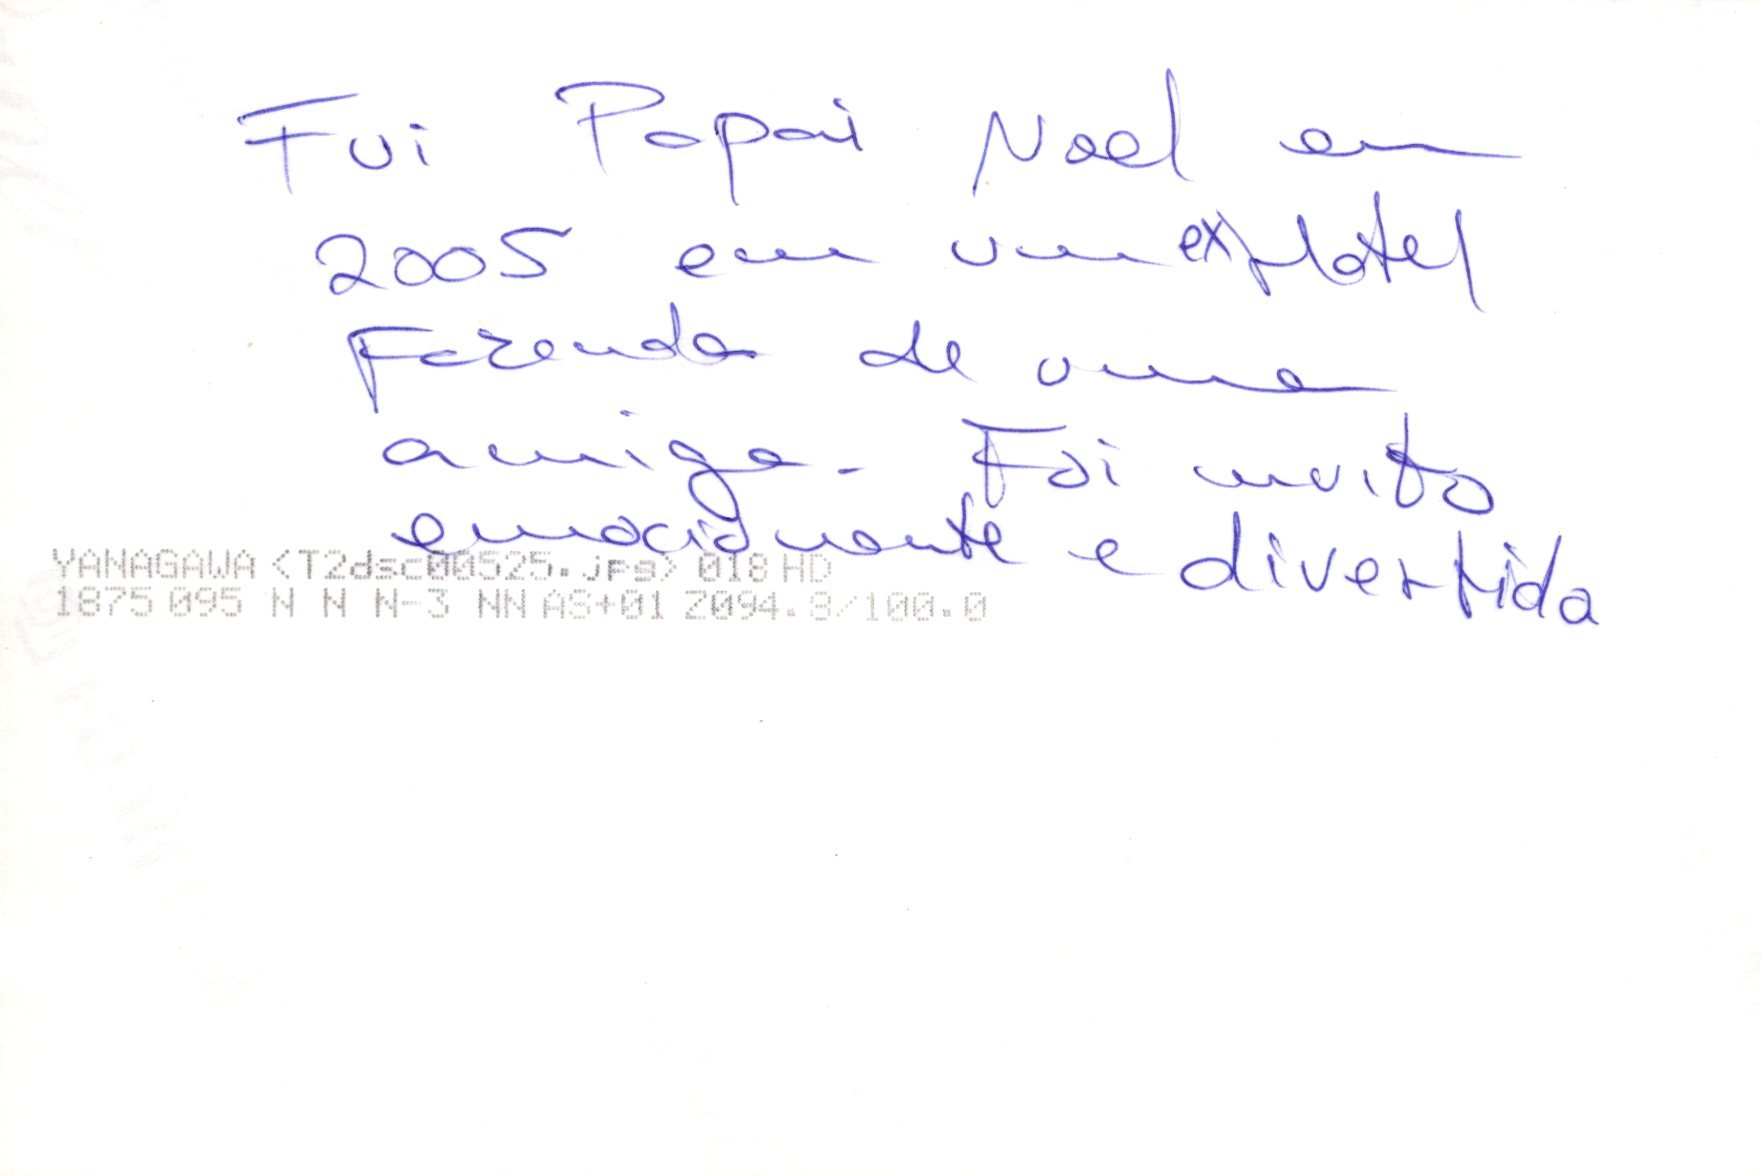 Fui Papai Noel em
2005 em um ex hotel
Fazenda de uma
amiga. Foi muito
emocionante e divertida
YANAGAWA <T2dsc00525.jpg> 018 HD
1875 095 N N N-3 NN AS+01 Z094.8/100.0